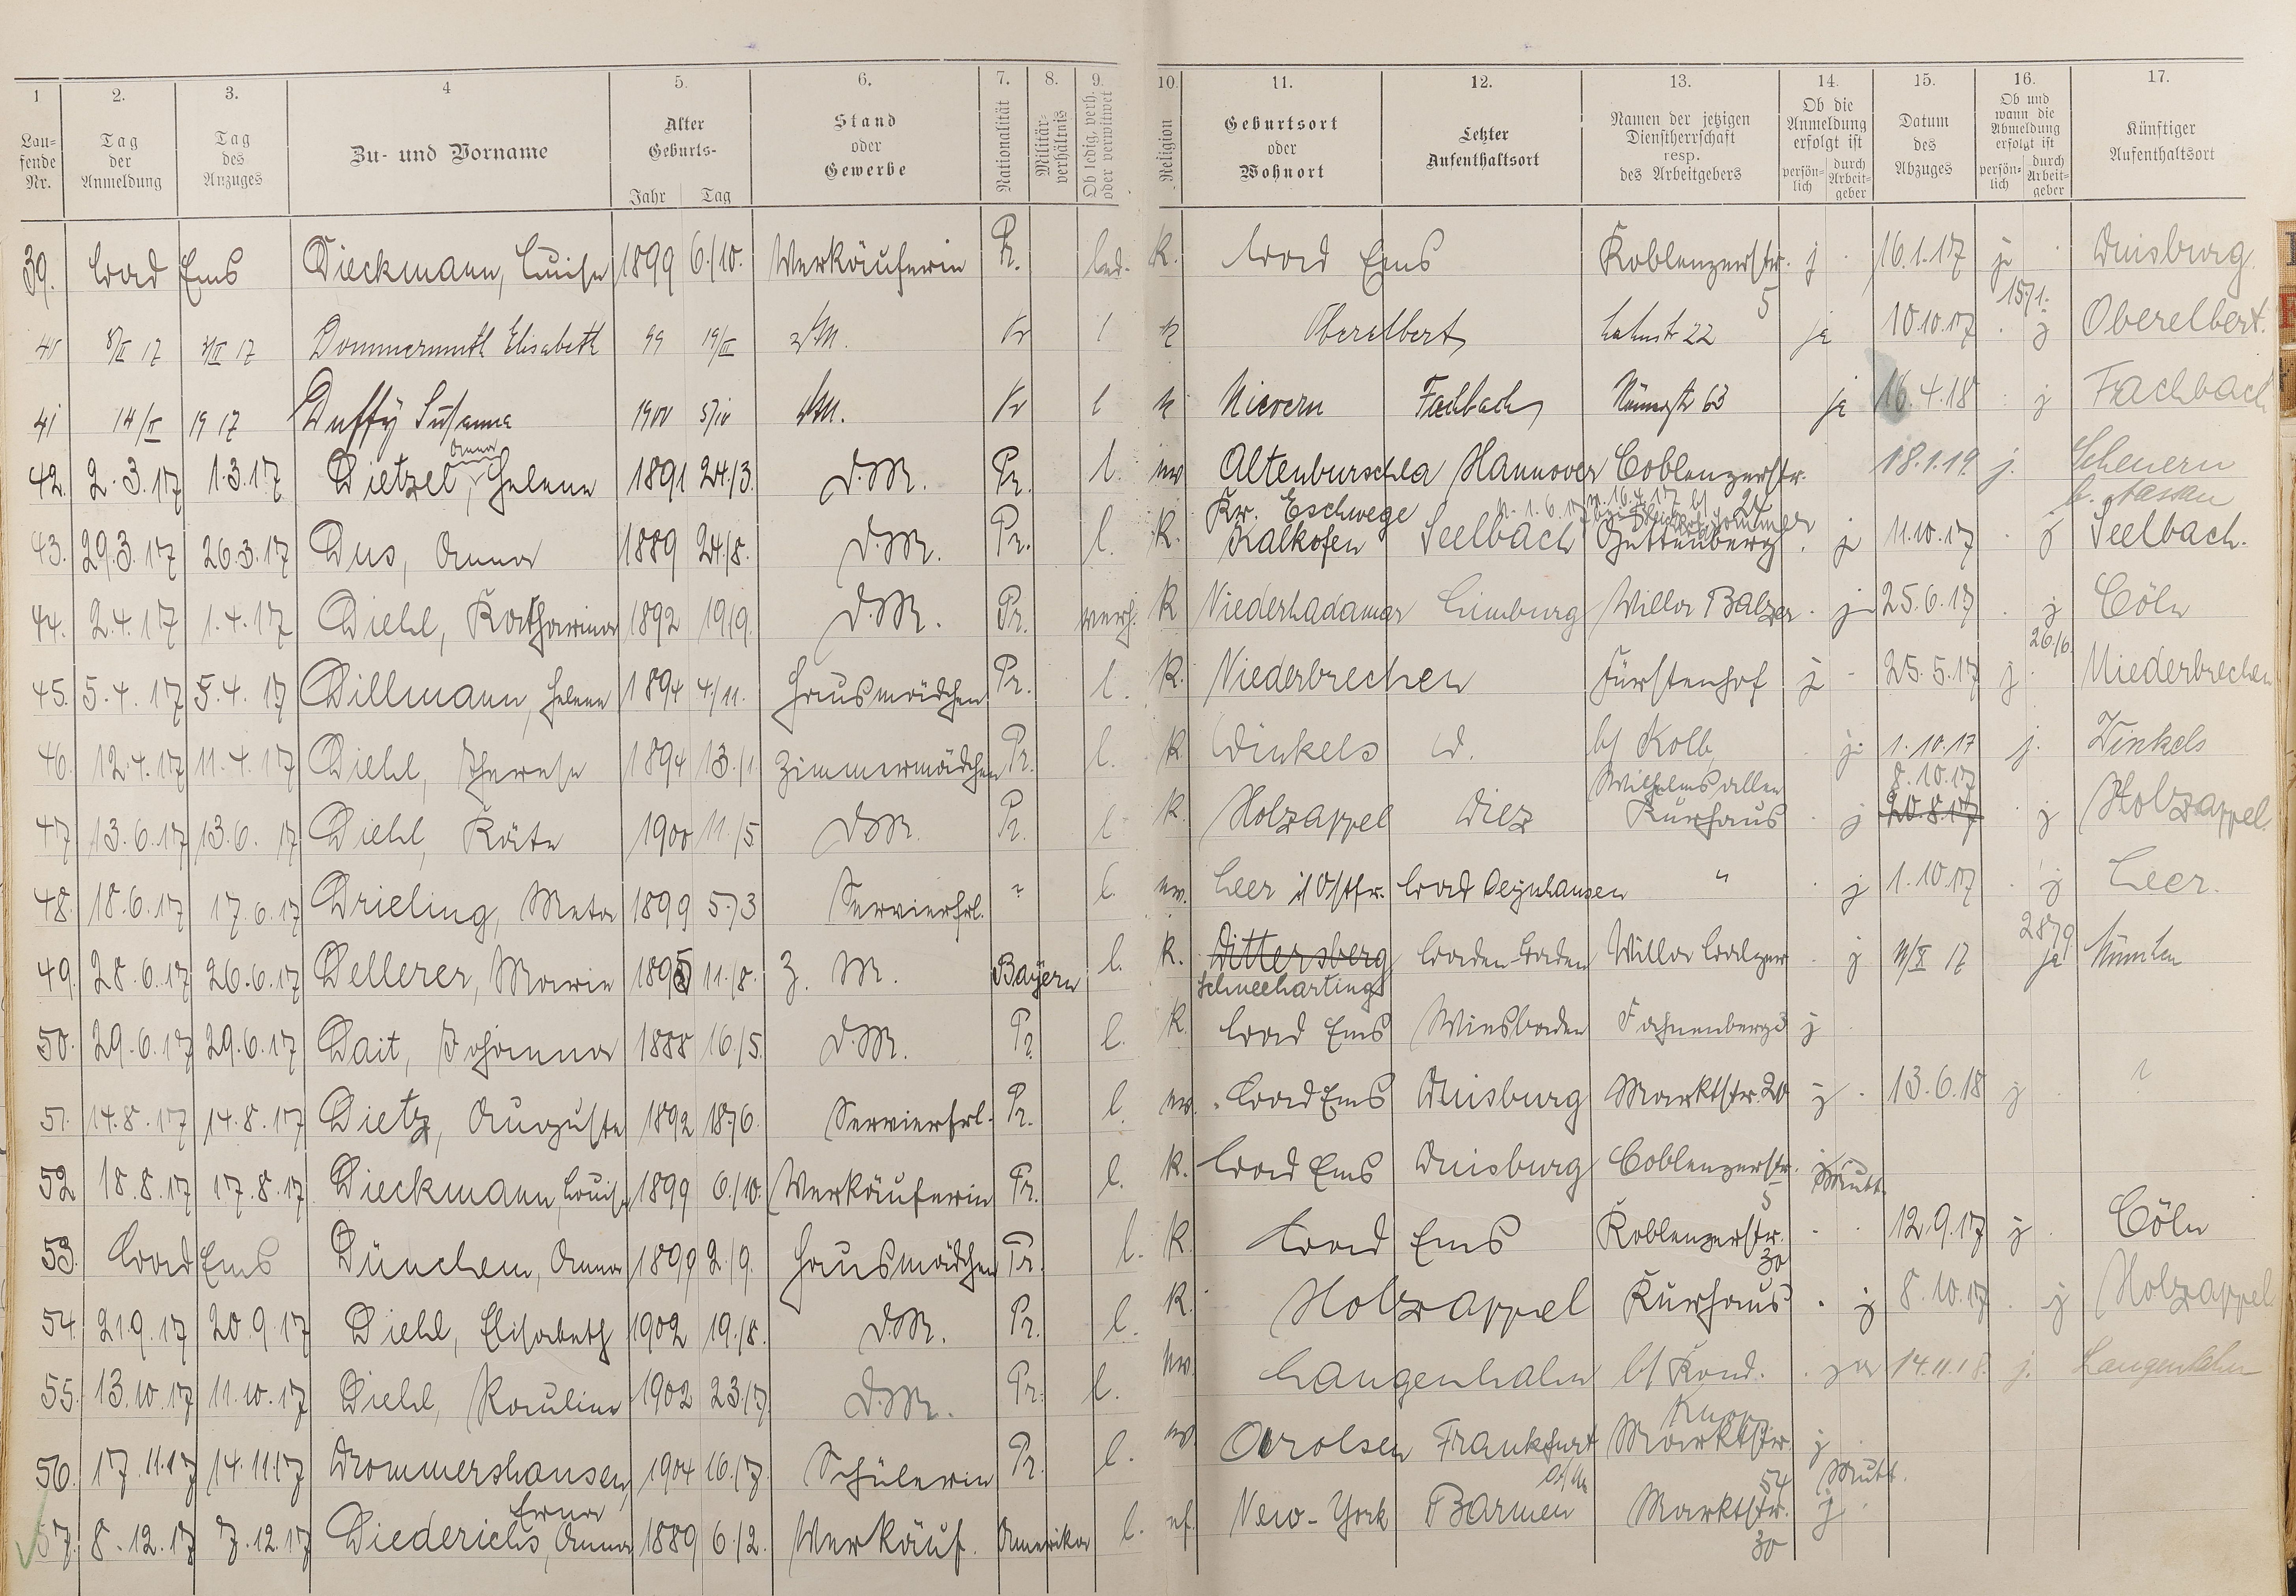 1 2. 3. 4 5. 6. 7. 8. 9. 10. 11. 12. 13. 14. 15. 16. 17.
Laufende Nr. Tag der Anmeldung Tag des Anzuges Zu- und Vorname Alter Geburts- Jahr Tag Stand oder Gewerbe Nationalität Militärverhältnis Ob ledig, verh. oder verwitwet Religion Geburtsort oder Wohnort Letzter Aufenthaltsort Namen der jetzigen Dienstherrschaft resp. des Arbeitgebers Ob die Anmeldung erfolgt ist persönlich durch Arbeitgeber Datum des Abzuges Ob und wann die Abmeldung erfolgt ist persönlich durch Arbeitgeber Künftiger Aufenthaltsort
39. Bad Ems Dieckmann, Luise 1899 6./10. Verkäuferin Pr. led. K. Bad Ems Koblenzerstr. 5 j 16.1.17 j Duisburg
15./1.
8/II 17 Dommermuth Elisabeth 99 19/III Pr l k Oberelbert Lahnstr 22 ja 10.10.17 j Oberelbert.
41 14/II 19 17 Duffÿ Susanna 1900 5/10 Pr l k Nievern Fachbach Römerstr 63 ja 16.4.18 j Fachbach
42. 2.3.17 1.3.17 Dietzel, Anna Helene 1891 24./3. D.M. Pr. l. ev Altenburschla Kr. Eschwege Hannover Coblenzerstr. 24 18.1.19. j. Scheuern b. Nassau
43. 29.3.17 26.3.17 Dus, Anna 1889 24./8. D.M. Pr. l. K. Kalkofen Seelbach Guttenberg j 11.10.17 j Seelbach.
44. 2.4.17 1.4.17 Diehl, Katharina 1892 19./9. D.M. Pr. verh. K Niederhadamar Limburg Villa Balzer j 25.6.17 j Cöln
26/6.
45. 5.4.17 5.4.17 Dillmann, Helene 1894 4./11. Hausmädchen Pr. l. K. Niederbrechen Fürstenhof j 25.5.17 j Niederbrechen
46. 12.4.17 11.4.17 Diehl, Therese 1894 13./1. Zimmermädchen Pr. l. K Winkels W. bei Kolb, Wilhelmsallee j. 1.10.17 j. Winkels
47 13.6.17 13.6.17 Diehl, Käte 1900 11./5 DM. Pr. l K. Holzappel Diez Kurhaus j 8.10.17 20.8.17 j Holzappel.
48. 18.6.17 17.6.17 Drieling, Meta 1899 5./3 Servierfrl. " l. ev. Leer i/Ostfr. Bad Oeynhausen " j 1.10.17 j Leer.
28/9
49. 28.6.17 26.6.17 Dellerer, Marie 1895 11./8. Z. M. Bayern l. K. Dittersberg Schneeharting Baden-Baden Villa Balzer j 17 ja München
50. 29.6.17 29.6.17 Dait, Johanna 1888 16./5. D.M. Pr. l. K. Bad Ems Wiesbaden Fahnenberg j
51. 14.8.17 14.8.17 Dietz, Auguste 1892 18./6. Servierfrl. Pr. l. ev. Bad Ems Duisburg Marktstr. 20 j 13.6.18 j ?
52 18.8.17 17.8.17 Dieckmann, Louise 1899 6./10. Verkäuferin Pr. l. K. Bad Ems Duisburg Coblenzerstr. 5 j Mutt.
53. Bad Ems Dünchem, Anna 1899 2./9. Hausmädchen Pr. l. K. Bad Ems Koblenzerstr. 30 12.9.17 j Cöln
54. 21.9.17 20.9.17 Diehl, Elisabeth 1902 19./8. D.M. Pr. l. K. Holzappel Kurhaus j 8.10.17 j Holzappel
55. 13.10.17 11.10.17 Diehl, Pauline 1902 23./7. D.M. Pr. l. ev. Langenhahn bei Kond. Knopp ja 14.11.18. j. Langenhahn
56. 17.11.17 14.11.17 Drommershausen, Erna 1904 16./7. Schülerin Pr. l. ev. Arolsen Frankfurt a/M Marktstr. 54 j Mutt.
57. 8.12.17 7.12.17 Diederichs, Anna 1889 6./2. Verkäuf. Amerika l. ref. New-York Barmen Marktstr. 30 j